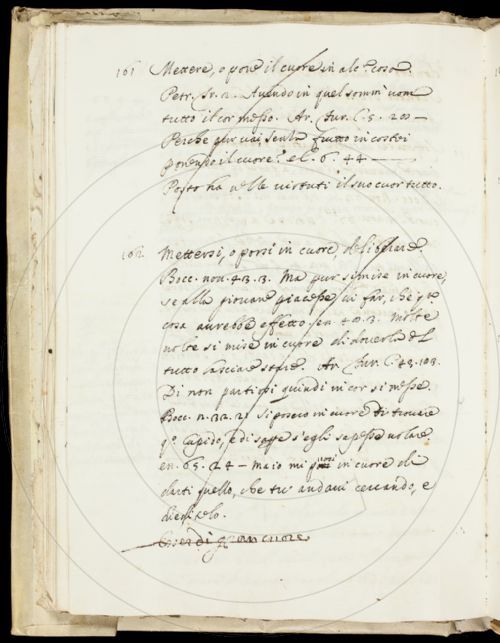 161 Mettere, o porre il cuore in alc.ª cosa.
Petr. Avendo in quel somm' uom
tutto il cor messo. Ar. Fur. C. 5. 20 —
Perche pur vai senza frutto in costei
ponendo il cuore? el. 6. 44 —
Posto ha nelle virtuti il suo cuor tutto.
162 Mettersi, o porsi in cuore, deliberare.
Bocc. nov. 43. 13. Ma pur si mise in cuore,
se alla giovane piacesse di far, che q.ta
cosa aurebbe effetto. en. 40. 3. Molte
volte si mise in cuore di doverla del
tutto lasciare stare. Ar. Fur. C. 43. 103.
Di non partirsi quindi in cor si messe.
Bocc. n. 32. 21 si posero in cuore di trovare
q.º Cupido, e di saper s'egli sapesse volare
en. 65. 24 — ma io mi posi in cuore di
darti quello, che tu andavi cercando, e
dieditelo.
Esser di gran cuore